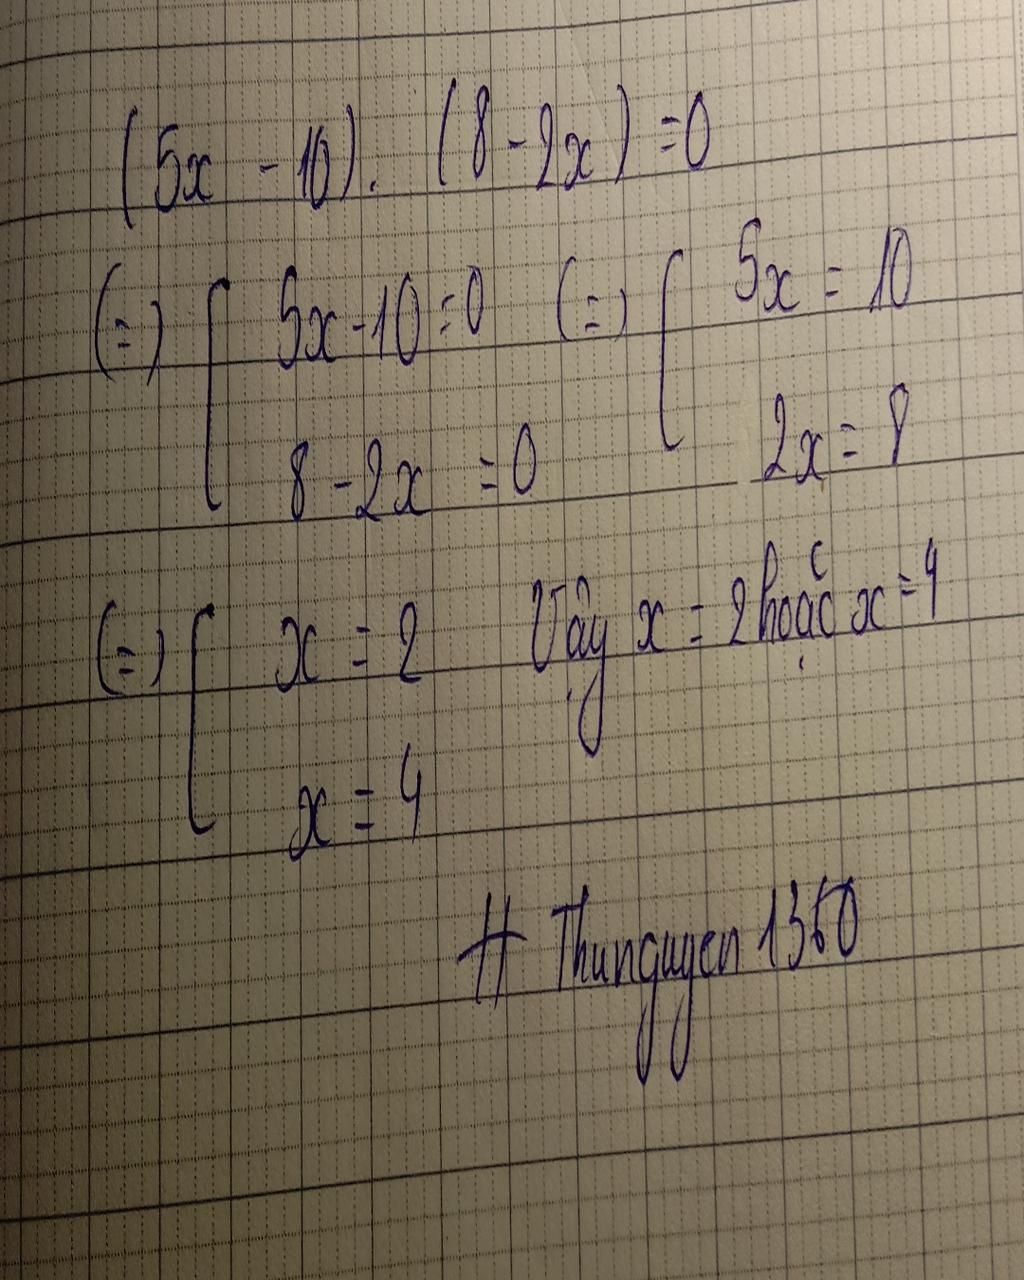 (5x - 10). (8 - 2x) = 0
(=) [ 5x - 10 = 0 (=) [ 5x = 10
8 - 2x = 0 2x = 8
(=) [ x = 2 Vậy x = 2 hoặc x = 4
x = 4
# Thunguyen 1360